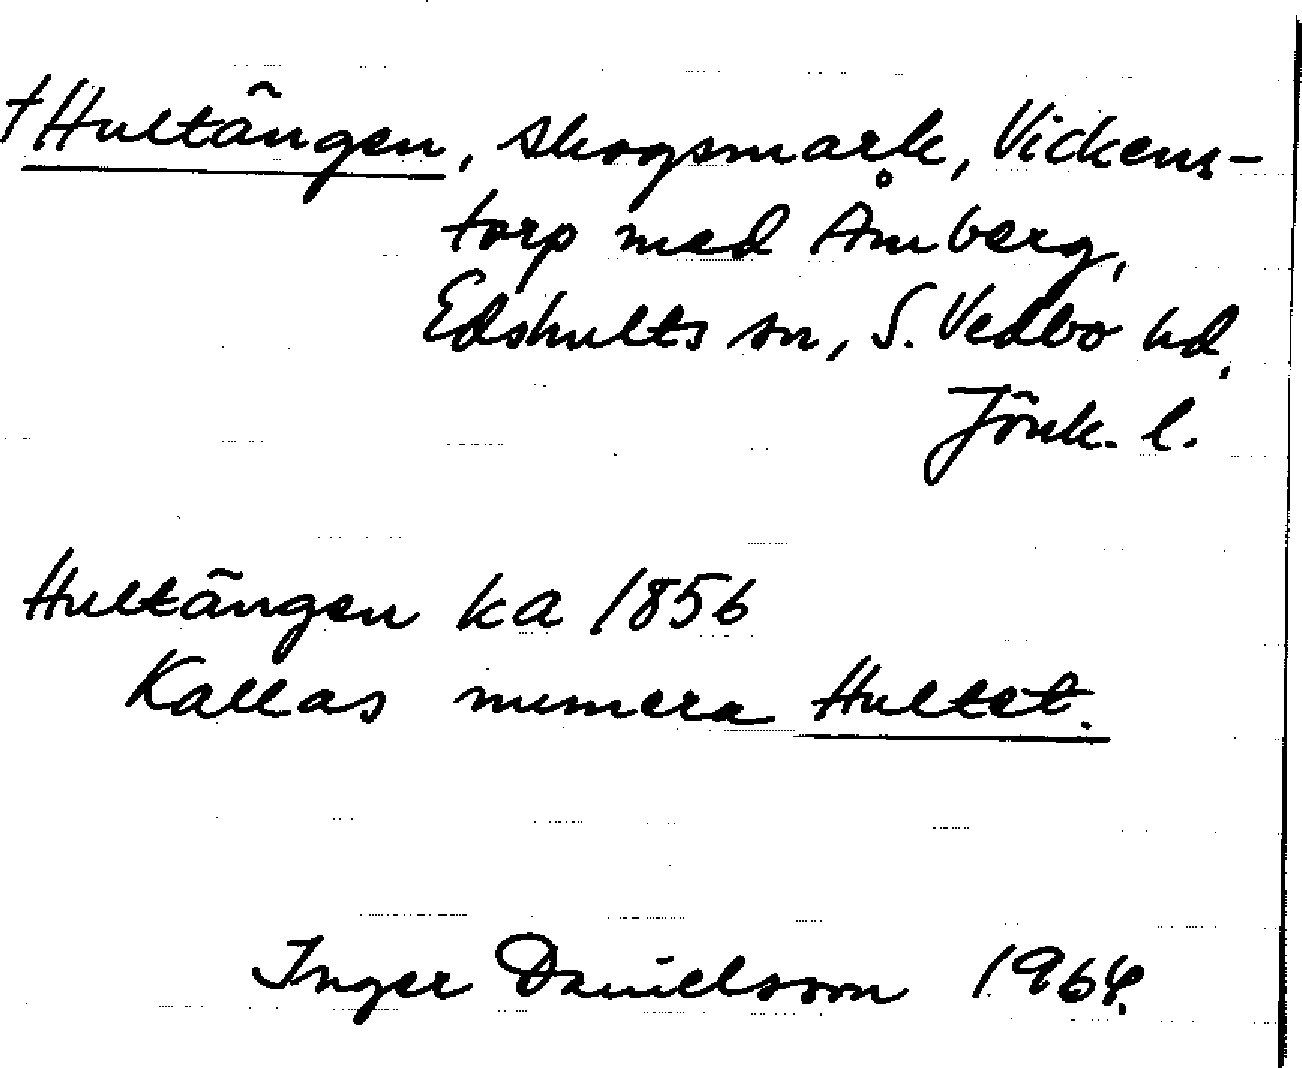 †Hultängen, skogsmark, Vickens-
torp med Åmberg,
Edshults sn, S. Vedbo hd,
Jönk. l.
Hultängen ka 1856
Kallas numera Hultet.
Inger Danielsson 1964.